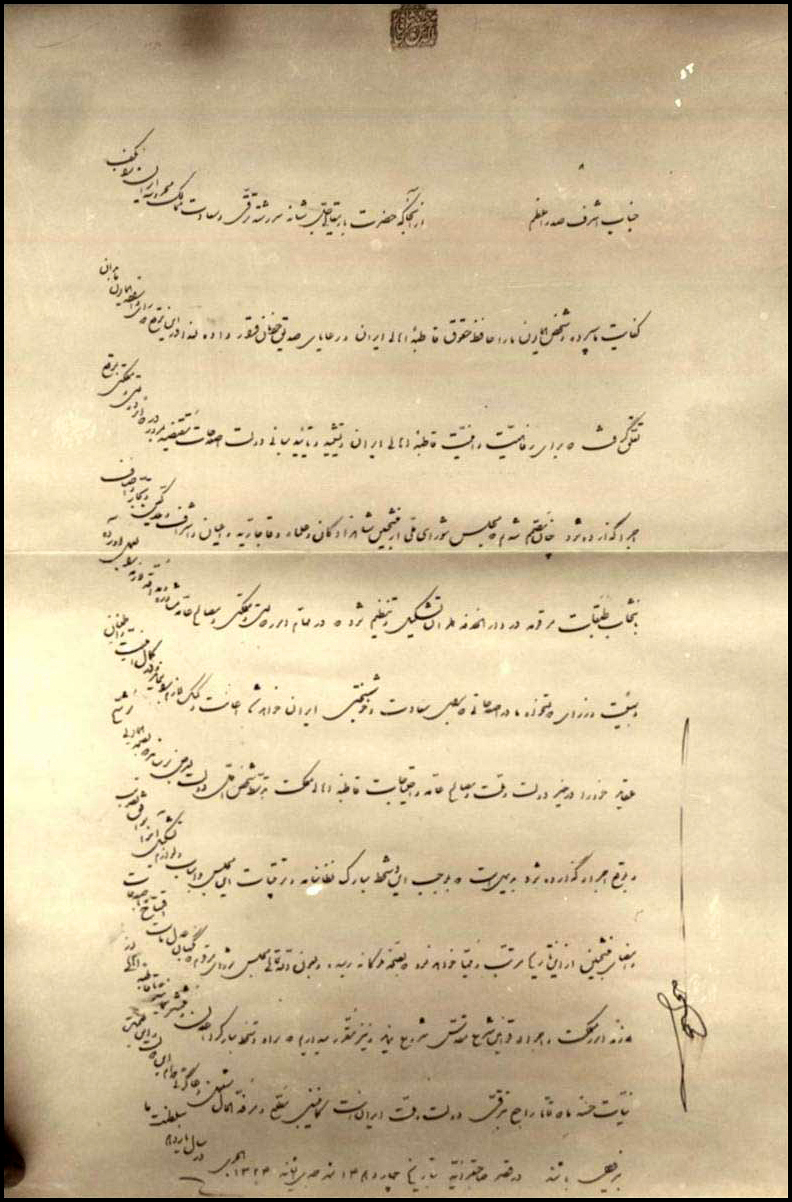 جناب اشرف صدراعظم از آنجا که حضرت باری تعالی جل شانه سررشته ترقی و سعادت ممالک محروسه ایران را بکف
کفایت ما سپرده و شخص همایون ما را حافظ حقوق قاطبه اهالی ایران و رعایای صدیق خودمان قرار داده لهذا در این موقع که رای و اراده همایون ما بدان
تعلق گرفت که برای رفاهیت و امنیت قاطبه اهالی ایران و تشیید و تایید مبانی دولت اصلاحات مقتضیه بمرور در دوائر دولتی و مملکتی بموقع
اجرا گذارده شود چنان مصمم شدیم که مجلس شورای ملی از منتخبین شاهزادگان و علماء و قاجاریه و اعیان و اشراف و ملاکین و تجار و اصناف
بانتخاب طبقات مرقومه در دارالخلافه طهران تشکیل و تنظیم شود که در مهام امور دولتی و مملکتی و مصالح عامه مشاوره و مداقه لازمه را بعمل آورده
به هیئت وزرای دولتخواه ما در اصلاحاتی که برای سعادت و خوشبختی ایران خواهد شد اعانت و کمک لازم را بنماید و در کمال امنیت و اطمینان
عقاید خود را در خیر دولت و ملت و مصالح عامه و احتیاجات قاطبه اهالی مملکت بتوسط شخص اول دولت بعرض برساند که بصحه همایونی موشح
و بموقع اجرا گذارده شود بدیهی است که بموجب این دستخط مبارک نظامنامه و ترتیبات این مجلس و اسباب و لوازم تشکیل آنرا موافق تصویب
و امضای منتخبین از این تاریخ مرتب و مهیا خواهد نمود که بصحه ملوکانه رسیده و بعون الله تعالی مجلس شورای مرقوم که نگهبان عدل ماست افتتاح و باصلاحات
لازمه امور مملکت و اجراء قوانین شرع مقدس شروع نماید و نیز مقرر میداریم که سواد دستخط مبارک را اعلان و منتشر نمایند تا قاطبه اهالی از
نیات حسنه ما که تماما راجع بترقی دولت و ملت ایران است کماینبغی مطلع و مرفه الحال مشغول دعاگوئی دوام این دولت و این نعمت
بی زوال باشند در قصر صاحبقرانیه بتاریخ چهاردهم شهر جمادی الثانیه ۱۳۲۴ هجری در سال یازدهم سلطنت ما